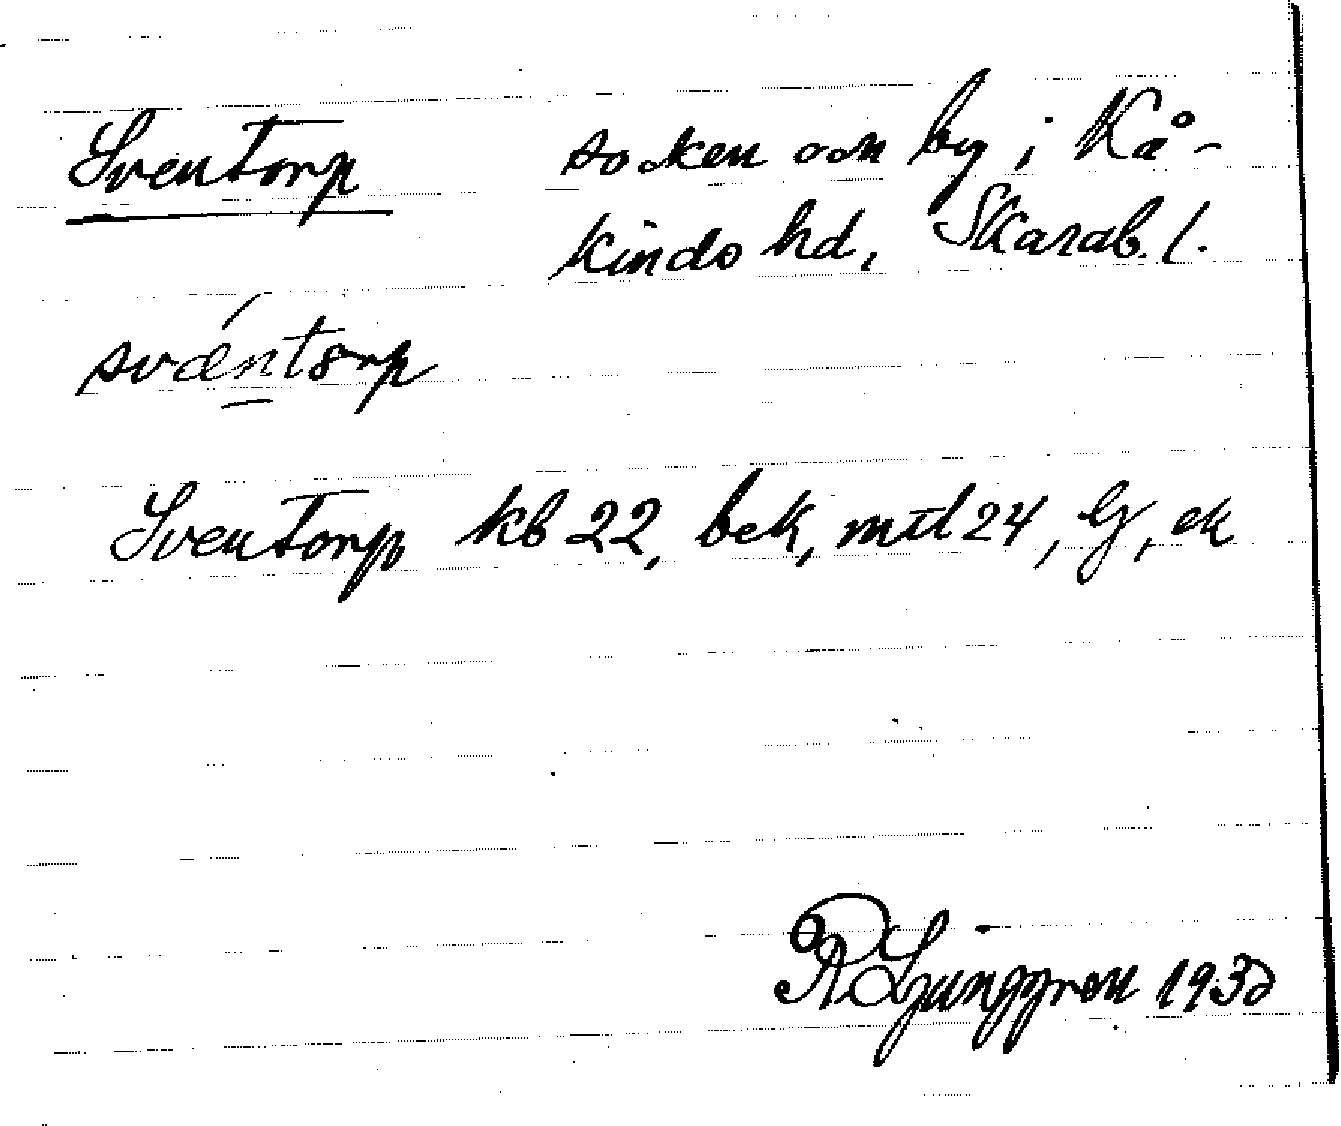 Sventorp socken och by i Kå-
kinds hd, Skarab. l.
svæntorp
Sventorp kb 22, bek, mtl 24, G, ek
R Ljunggren 1930